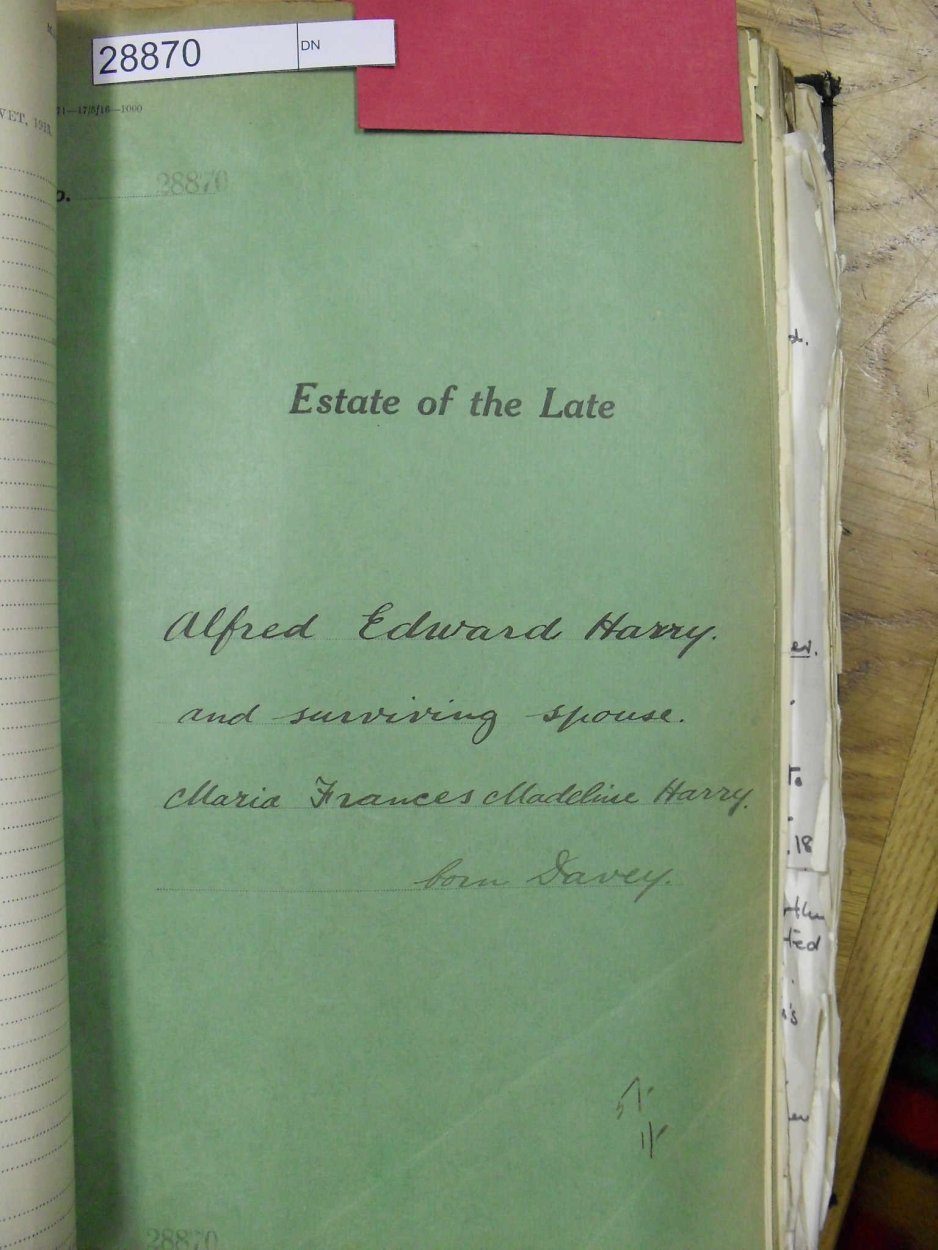 28870 DN
WET, 1913
71—17/5/16—1000
o. 28870
Estate of the Late
Alfred Edward Harry.
and surviving spouse.
Maria Frances Madeline Harry.
born Davey.
28870
18